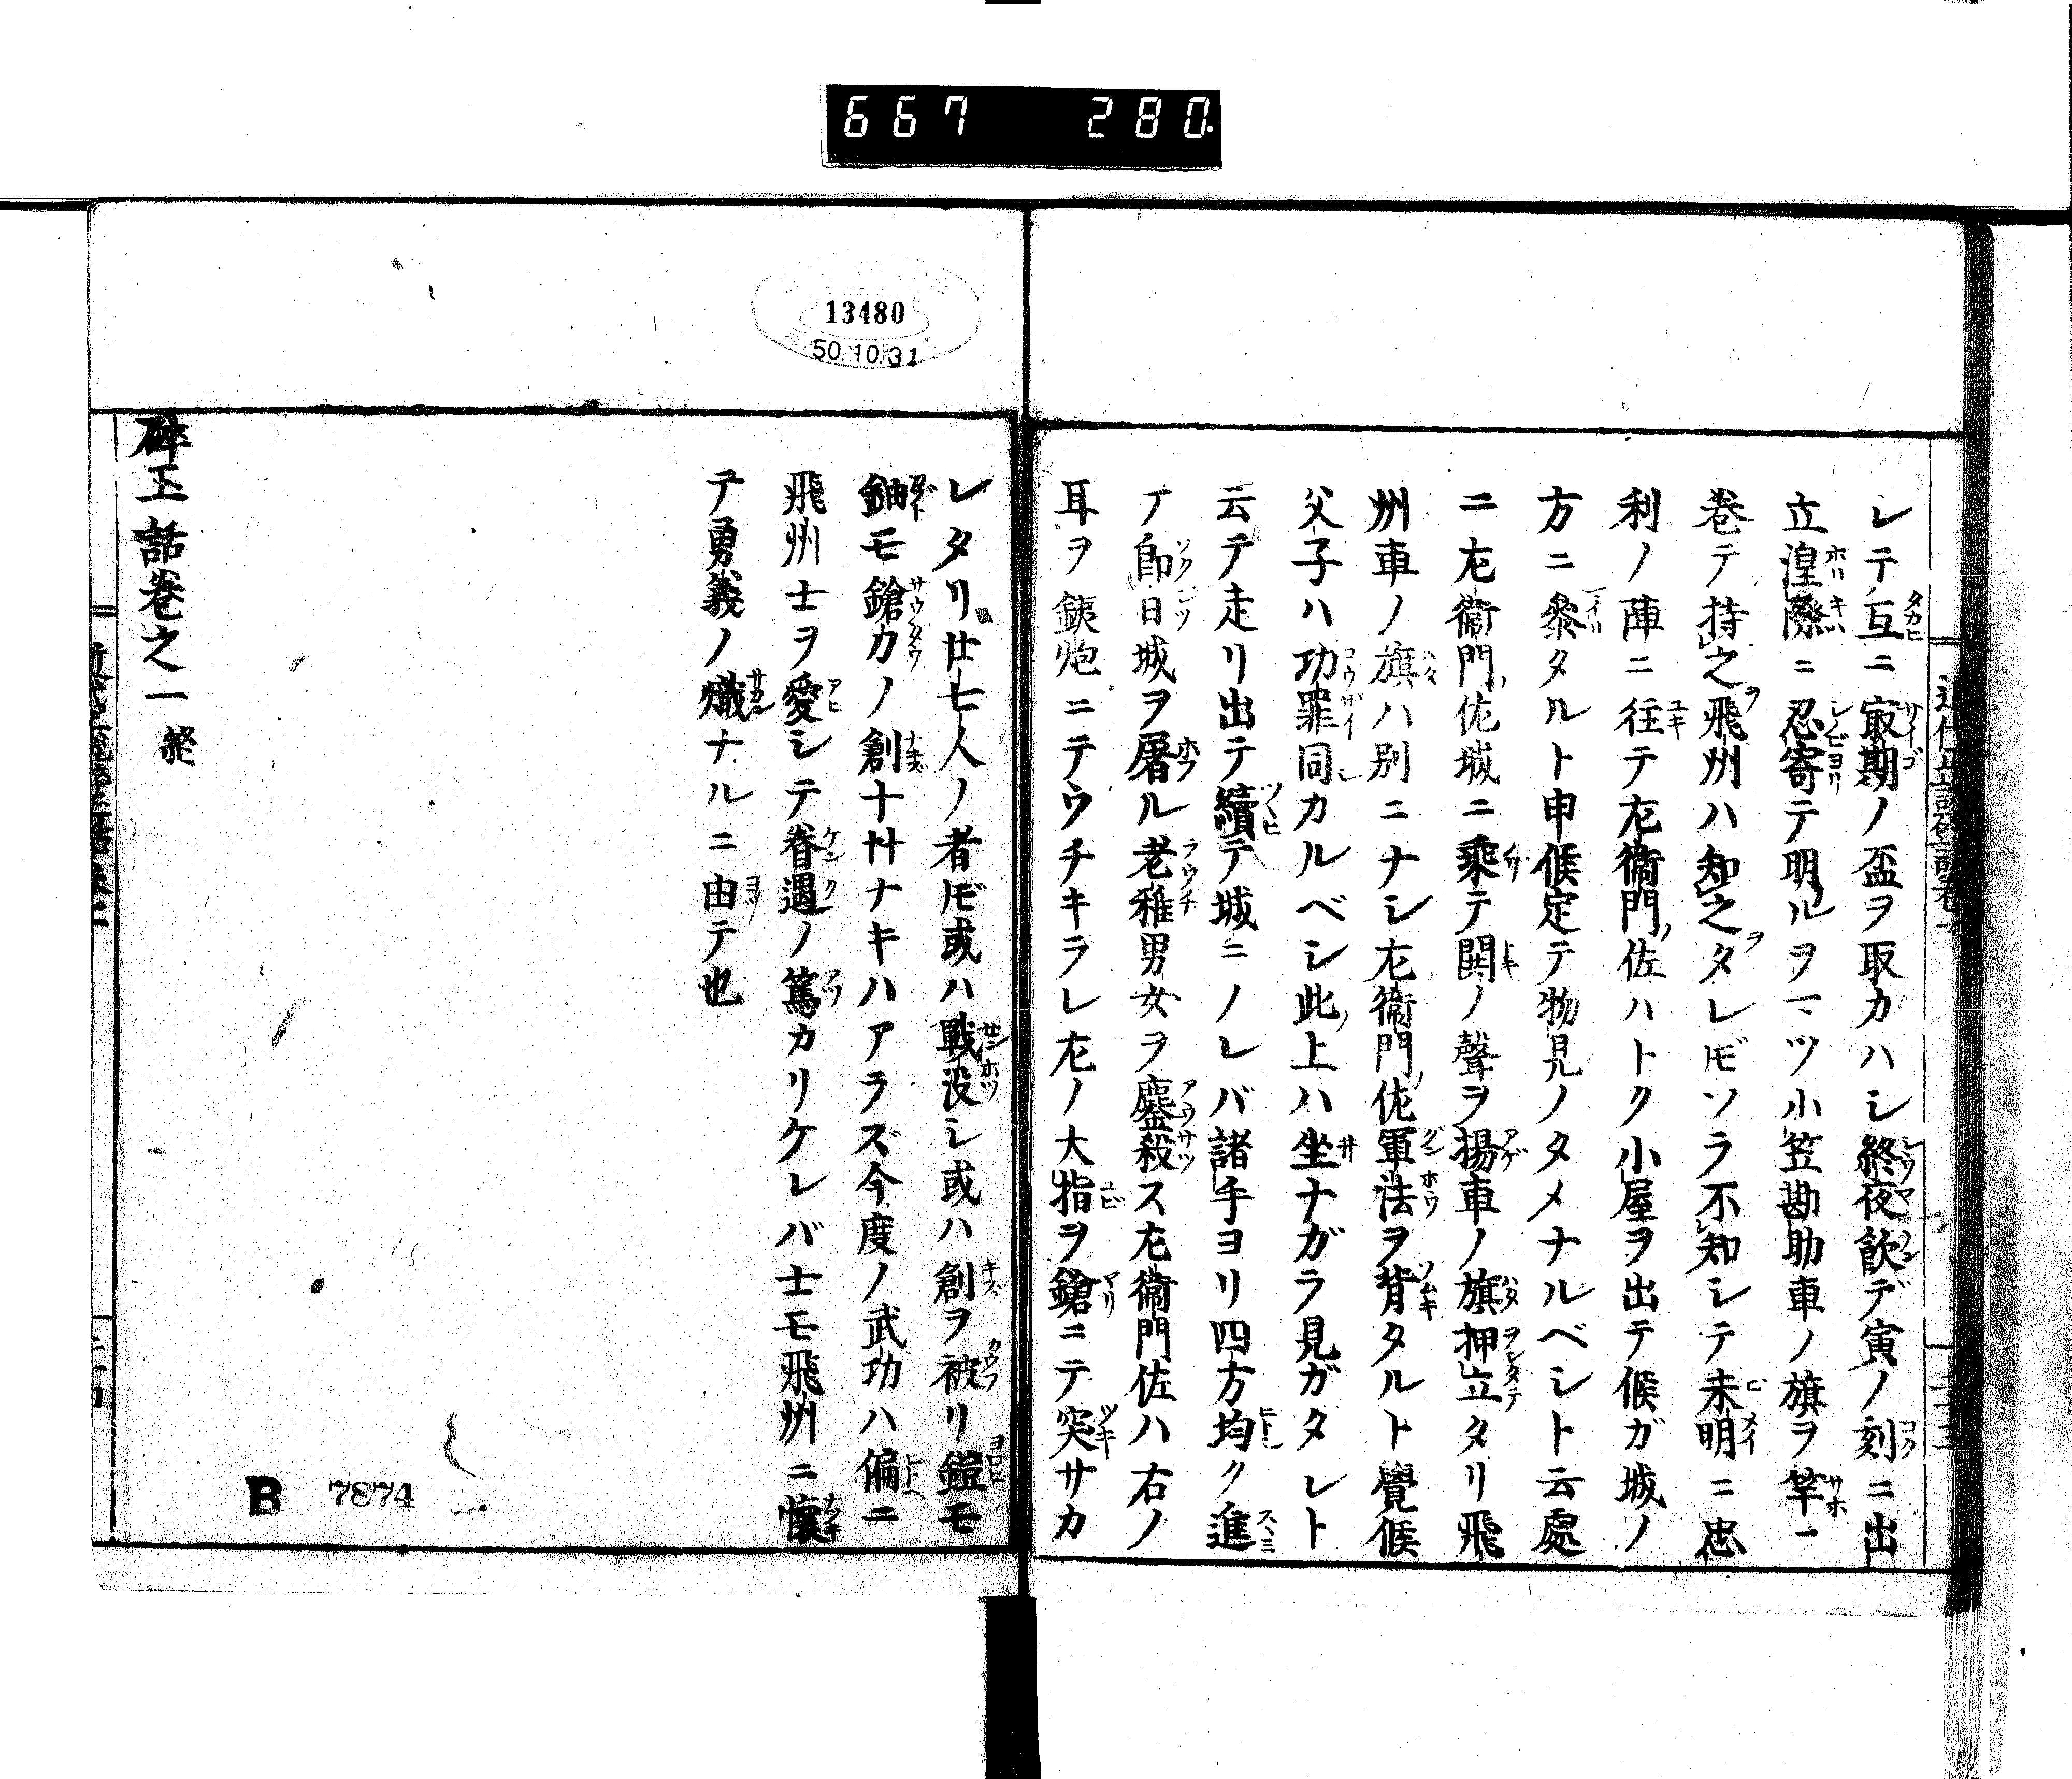 667 280
レテ互ニ㝡期ノ盃ヲ取カハシ終夜飮デ寅ノ刻ニ出
立湟際ニ忍寄テ明ルヲマツ小笠勘助車ノ旗ヲ竿ニ
巻テ持之飛州ハ知之タレ𪜈ソラ不知シテ未明ニ忠
利ノ陣ニ往テ左衞門佐ハトク小屋ヲ出テ候ガ城ノ
方ニ叅タルト申候定テ物見ノタメナルベシト云處
ニ左衞門佐城ニ乘テ鬨ノ聲ヲ揚車ノ旗押立タリ飛
州車ノ旗ハ別ニナシ左衞門佐軍法ヲ背タルト覺候
父子ハ功罪同カルベシ此上ハ坐ナガラ見ガタレト
云テ走リ出テ續テ城ニノレバ諸手ヨリ四方均ク進
テ即日城ヲ屠ル老稚男女ヲ鏖殺ス左衞門佐ハ右ノ
耳ヲ銕炮ニテウチキラレ左ノ大指ヲ鎗ニテ突サカ
13480
50.10.31
レタリ廿七人ノ者𪜈或ハ戰没シ或ハ創ヲ被リ鎧モ
鈾モ鎗カノ創十廿ナキハアラズ今度ノ武功ハ偏ニ
飛州士ヲ愛シテ眷遇ノ篤カリケレバ士モ飛州ニ懷
テ勇義ノ熾ナルニ由テ也
碎玉話巻之一 終
B 7874